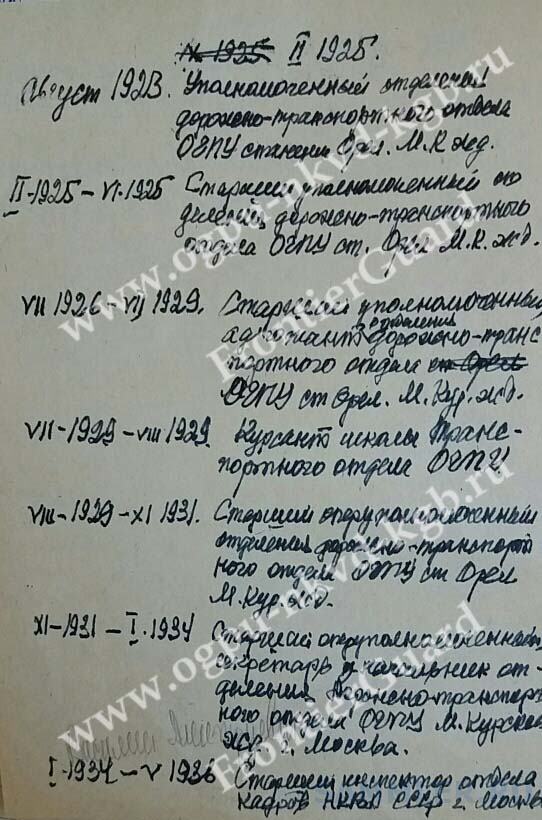 IX 1925 II 1925.
Август 1923. Уполномоченный отделения
дорожно-транспортного отдела
ОГПУ станции Орел. М.К жд.
II-1925 – VI-1925 Старший уполномоченный
делений, дорожно-транспортного
отдела ОГПУ ст. Орел М.К. жд.
VII 1926 – VII 1929. Старший уполномоченный
отделения
адютант дорожно-транс
портного отдела ст Орел
ОГПУ ст Орел. М. Кур. жд.
VII-1929 – VIII 1929. Курсант школы Транс-
портного отдела ОГПУ
VIII – 1929 – XI 1931. Старший оперуполномоченный
отделения дорожно-транспорт
ного отдела ОГПУ ст Орел
М. Кур. жд.
XI-1931 – I. 1934 Старший оперуполномоченный,
секретарь, начальник от-
деления Дорожно-транспорт
ного отдела ОГПУ М. Курской
жд. г. Москва.
I-1934 – V 1936 Старший инспектор отдела
кадров НКВД СССР г. Москва
www.ogpu-nkvd-kgb.ru
FrontierGuard
www.ogpu-nkvd-kgb.ru
FrontierGuard
www.ogpu-nkvd-kgb.ru
FrontierGuard